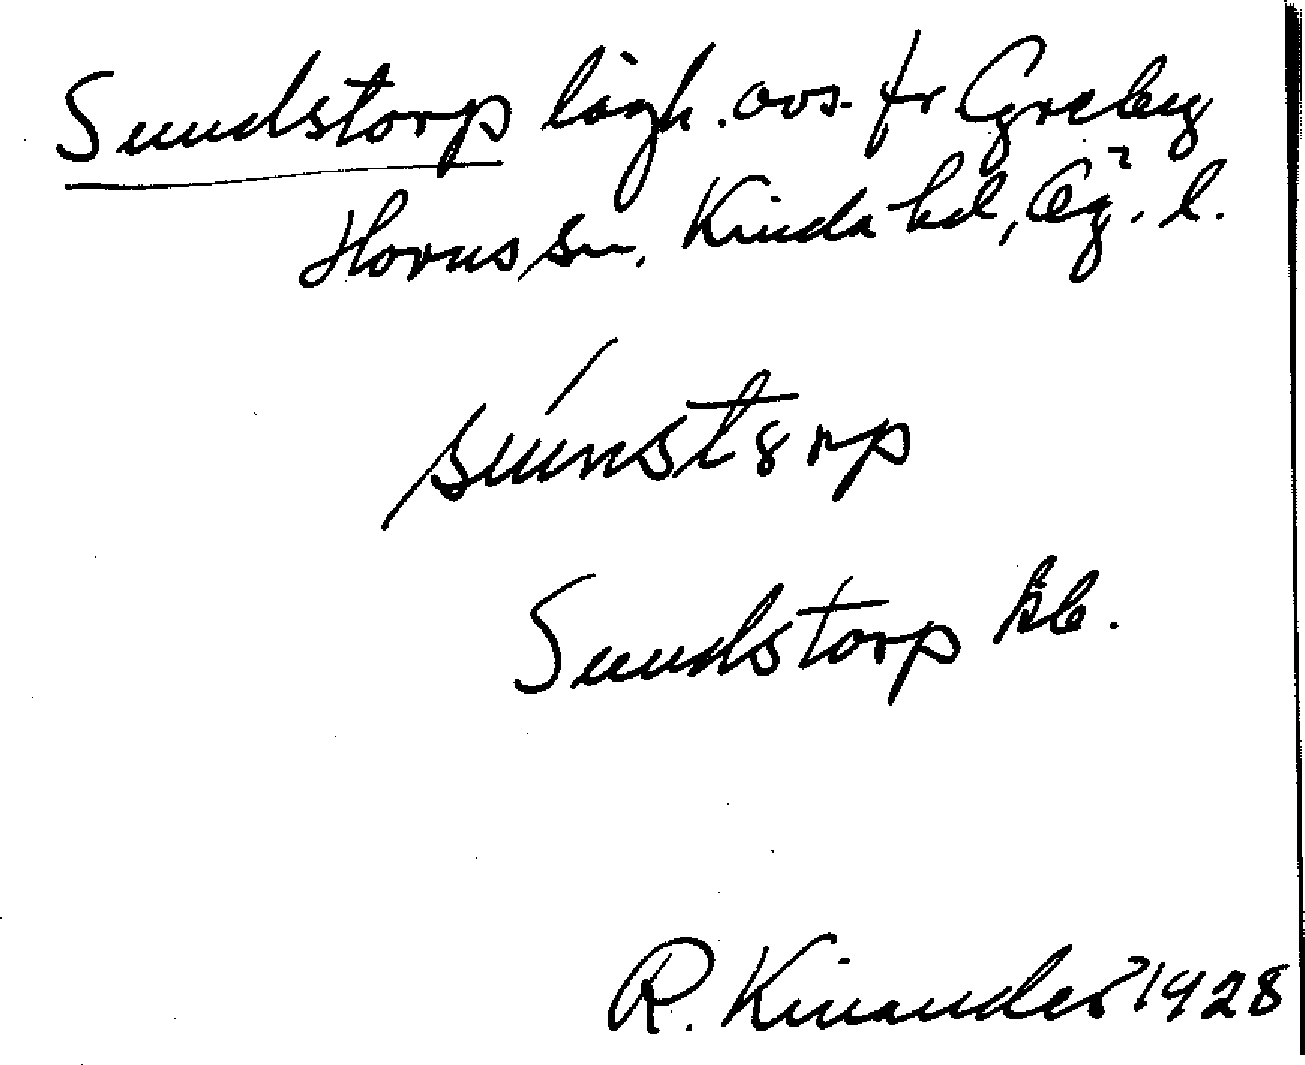 Sundstorp lägh. avs. fr Greby
Horns sn, Kinda hd, Ög. l.
súnstorp
Sundstorp kb.
R. Kinander 1928